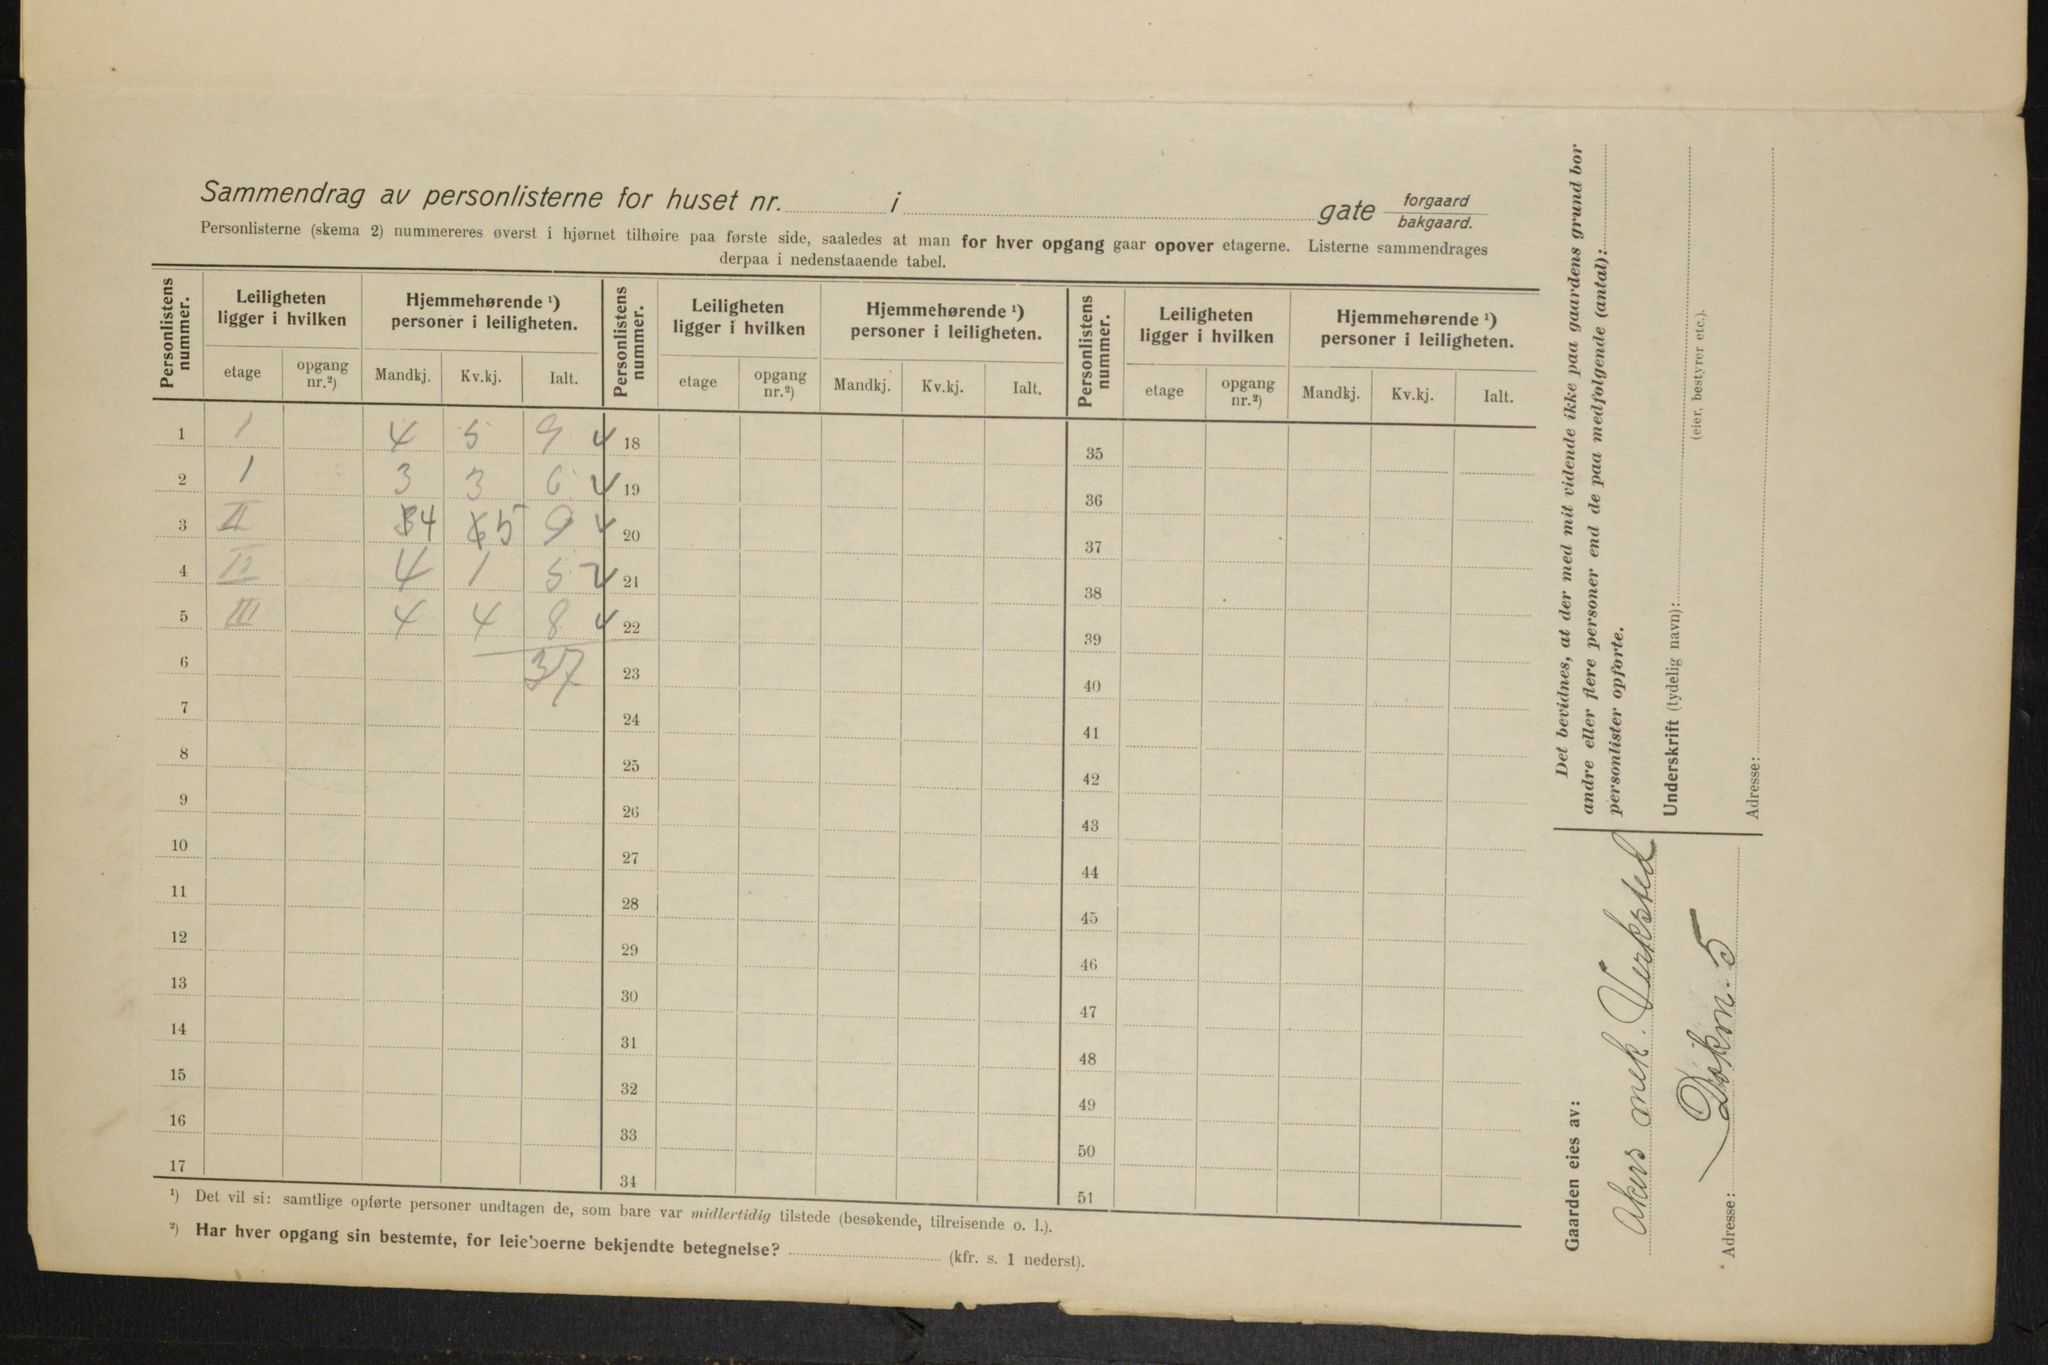 Sammendrag av personlisterne for huset nr. i gate forgaard bakgaard.
Personlisterne (skema 2) nummereres øverst i hjørnet tilhøire paa første side, saaledes at man for hver opgang gaar opover etagerne. Listerne sammendrages
derpaa i nedenstaaende tabel.
Personlistens nummer. Leiligheten ligger i hvilken Hjemmehørende ¹) personer i leiligheten. Personlistens nummer. Leiligheten ligger i hvilken Hjemmehørende ¹) personer i leiligheten. Personlistens nummer. Leiligheten ligger i hvilken Hjemmehørende ¹) personer i leiligheten.
etage opgang nr.²) Mandkj. Kv.kj. Ialt. etage opgang nr.²) Mandkj. Kv.kj. Ialt. etage opgang nr.²) Mandkj. Kv.kj. Ialt.
1 1 4 5 9 18 35
2 1 3 3 6 19 36
3 II 4 5 9 20 37
4 II 4 1 5 21 38
5 III 4 4 8 22 39
6 37 23 40
7 24 41
8 25 42
9 26 43
10 27 44
11 28 45
12 29 46
13 30 47
14 31 48
15 32 49
16 33 50
17 34 51
¹) Det vil si: samtlige opførte personer undtagen de, som bare var midlertidig tilstede (besøkende, tilreisende o. l.).
²) Har hver opgang sin bestemte, for leieboerne bekjendte betegnelse? (kfr. s. 1 nederst).
Det bevidnes, at der med mit vidende ikke paa gaardens grund bor
andre eller flere personer end de paa medfølgende (antal):
personlister opførte.
Underskrift (tydelig navn):
(eier, bestyrer etc.).
Adresse:
Gaarden eies av:
Akers mek. Verksted
Adresse: Dokvn. 5